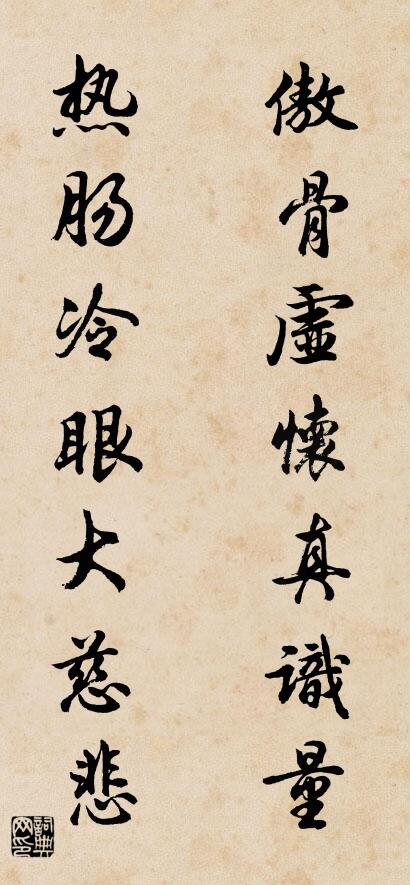 傲骨虚懷真識量
热肠冷眼大慈悲
詞典网印